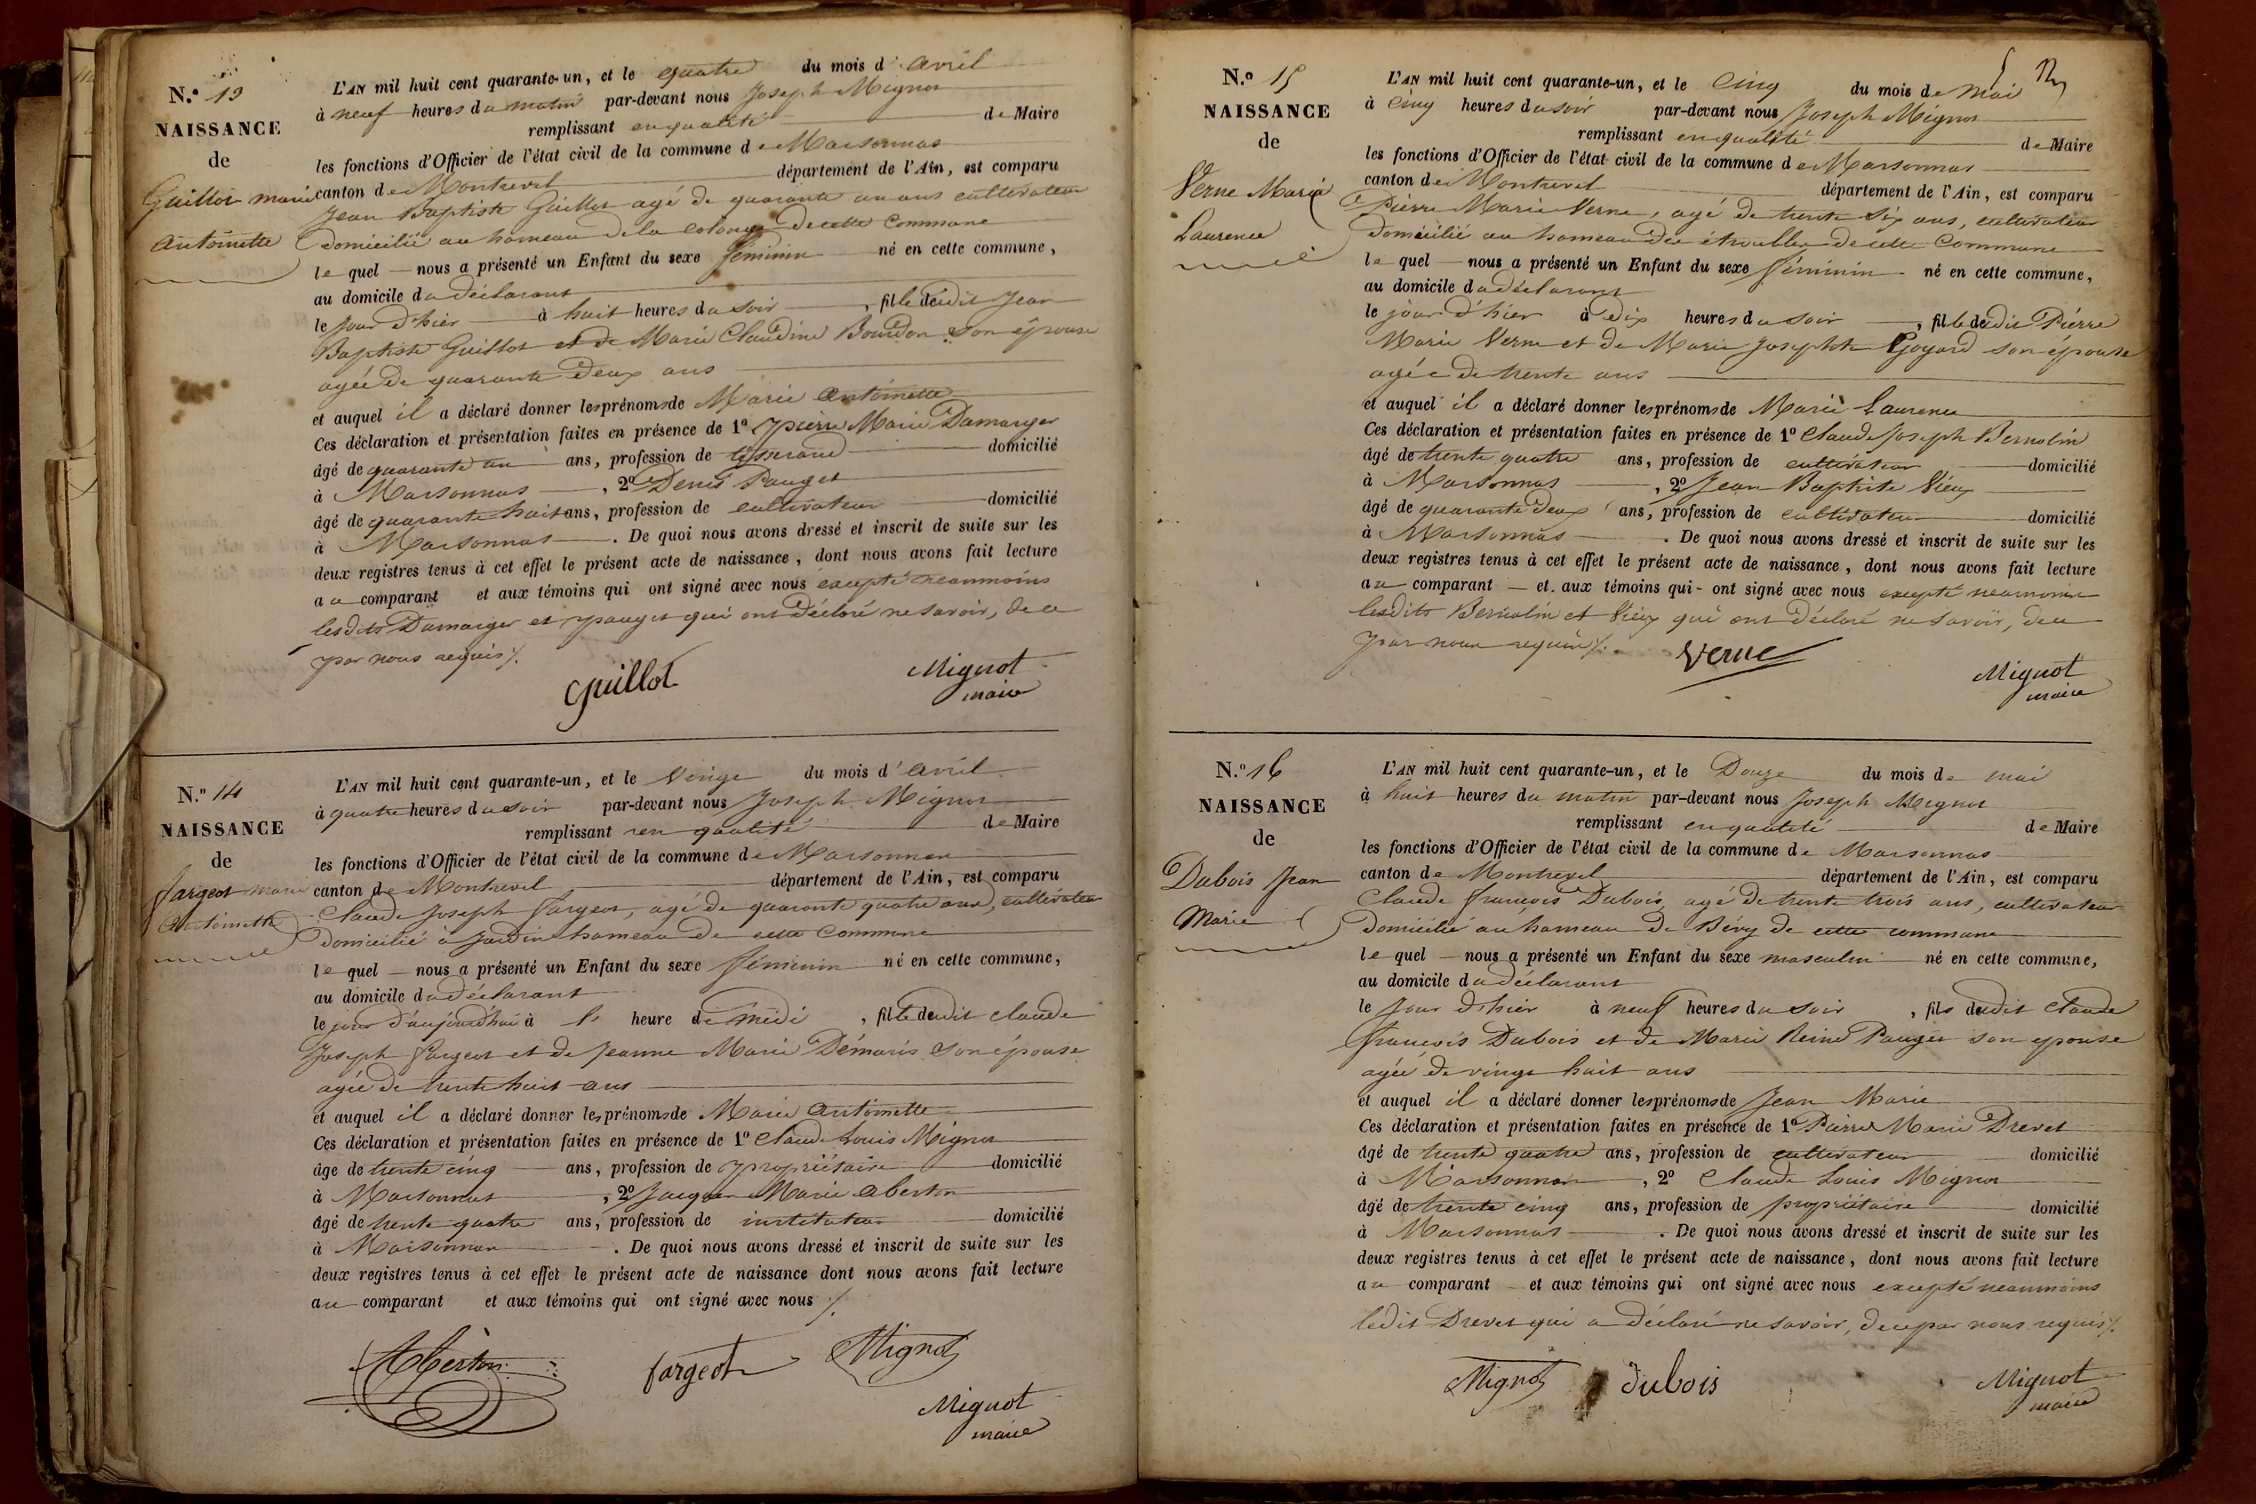 N.o 13
NAISSANCE
de
Guillot marie
antoinette
L'AN mil huit cent quarante-un, et le quatre du mois d'avril
à neuf heures du matin par-devant nous Joseph Mignot
remplissant en qualité de Maire
les fonctions d'Officier de l'état civil de la commune de Marsonnas
canton de Montrevel département de l'Ain, est comparu
Jean Baptiste Guillot agé de quarante un ans cultivateur
domicilié au hameau de la de cette commune
le quel nous a présenté un Enfant du sexe féminin né en cette commune,
au domicile du déclarant
le jour d'hier à huit heures du soir, fille dudit Jean
Baptiste Guillot et de Marie Claudine Bourdon son épouse
agée de quarante deux ans
et auquel il a déclaré donner les prénoms de Marie antoinette
Ces déclaration et présentation faites en présence de 1o pierre Marie Damarger
âgé de quarante un ans, profession de tisserand domicilié
à Marsonnas, 2o Denis Pauget
âgé de quarante huit ans, profession de cultivateur domicilié
à Marsonnas. De quoi nous avons dressé et inscrit de suite sur les
deux registres tenus à cet effet le présent acte de naissance, dont nous avons fait lecture
au comparant et aux témoins qui ont signé avec nous excepté neanmoins
lesdits Damarger et pauget qui ont déclaré ne savoir, de ce
par nous requis ./.
Guillot
Mignot
maire
N.o 14
NAISSANCE
de
fargeot marie
antoinette
L'AN mil huit cent quarante-un, et le vingt du mois d'avril
à quatre heures du soir par-devant nous Joseph Mignot
remplissant en qualité de Maire
les fonctions d'Officier de l'état civil de la commune de Marsonnas
canton de Montrevel département de l'Ain, est comparu
Claude Joseph fargeot, agé de quarante quatre ans, cultivateur
domicilié à Jardin hameau de cette commune
le quel nous a présenté un Enfant du sexe féminin né en cette commune,
au domicile du déclarant
le jour d'aujourdhui à heure de midi, fille dudit claude
Joseph fargeot et de Jeanne Marie Démaris son épouse
agée de trente huit ans
et auquel il a déclaré donner les prénoms de Marie antoinette
Ces déclaration et présentation faites en présence de 1o claude Louis Mignot
âge de trente cinq ans, profession de propriétaire domicilié
à Marsonnas, 2o Jacques Marie aberton
âgé de trente quatre ans, profession de instituteur domicilié
à Marsonnas. De quoi nous avons dressé et inscrit de suite sur les
deux registres tenus à cet effet le présent acte de naissance dont nous avons fait lecture
au comparant et aux témoins qui ont signé avec nous ./.
Aberton
fargeot
Mignot
Mignot
maire
N.o 15
NAISSANCE
de
Verne Marie
Laurence
L'AN mil huit cent quarante-un, et le cinq du mois de mai
à cinq heures du soir par-devant nous Joseph Mignot
remplissant en qualité de Maire
les fonctions d'Officier de l'état civil de la commune de Marsonnas
canton de Montrevel département de l'Ain, est comparu
Pierre Marie Verne, agé de trente six ans, cultivateur
domicilié au hameau des étroubles de cette commune
le quel nous a présenté un Enfant du sexe féminin né en cette commune,
au domicile du déclarant
le jour d'hier à dix heures du soir, fille dudit Pierre
Marie Verne et de Marie Josephte Goyard son épouse
agée de trente ans
et auquel il a déclaré donner les prénoms de Marie Laurence
Ces déclaration et présentation faites en présence de 1o Claude Joseph Bernolin
âgé de trente quatre ans, profession de cultivateur domicilié
à Marsonnas, 2o Jean Baptiste Vieux
âgé de quarante deux ans, profession de cultivateur domicilié
à Marsonnas. De quoi nous avons dressé et inscrit de suite sur les
deux registres tenus à cet effet le présent acte de naissance, dont nous avons fait lecture
au comparant et aux témoins qui ont signé avec nous excepté neanmoins
lesdits Bernolin et Vieux qui ont déclaré ne savoir, de ce
par nous requis ./.
Verne
Mignot
maire
N.o 16
NAISSANCE
de
Dubois Jean
Marie
L'AN mil huit cent quarante-un, et le Douze du mois de mai
à huit heures du matin par-devant nous Joseph Mignot
remplissant en qualité de Maire
les fonctions d'Officier de l'état civil de la commune de Marsonnas
canton de Montrevel département de l'Ain, est comparu
Claude françois Dubois, agé de trente trois ans, cultivateur
domicilié au hameau de Bévy de cette commune
le quel nous a présenté un Enfant du sexe masculin né en cette commune,
au domicile du déclarant
le jour d'hier à neuf heures du soir, fils dudit claude
françois Dubois et de Marie Reine Pauget son epouse
agée de vingt huit ans
et auquel il a déclaré donner les prénoms de Jean Marie
Ces déclaration et présentation faites en présence de 1o Pierre Marie Drevet
âgé de trente quatre ans, profession de cultivateur domicilié
à Marsonnas, 2o Claude Louis Mignot
âgé de trente cinq ans, profession de propriétaire domicilié
à Marsonnas. De quoi nous avons dressé et inscrit de suite sur les
deux registres tenus à cet effet le présent acte de naissance, dont nous avons fait lecture
au comparant et aux témoins qui ont signé avec nous excepté neanmoins
ledit Drevet qui a déclaré ne savoir, de ce par nous requis ./.
Mignot
Dubois
Mignot
maire